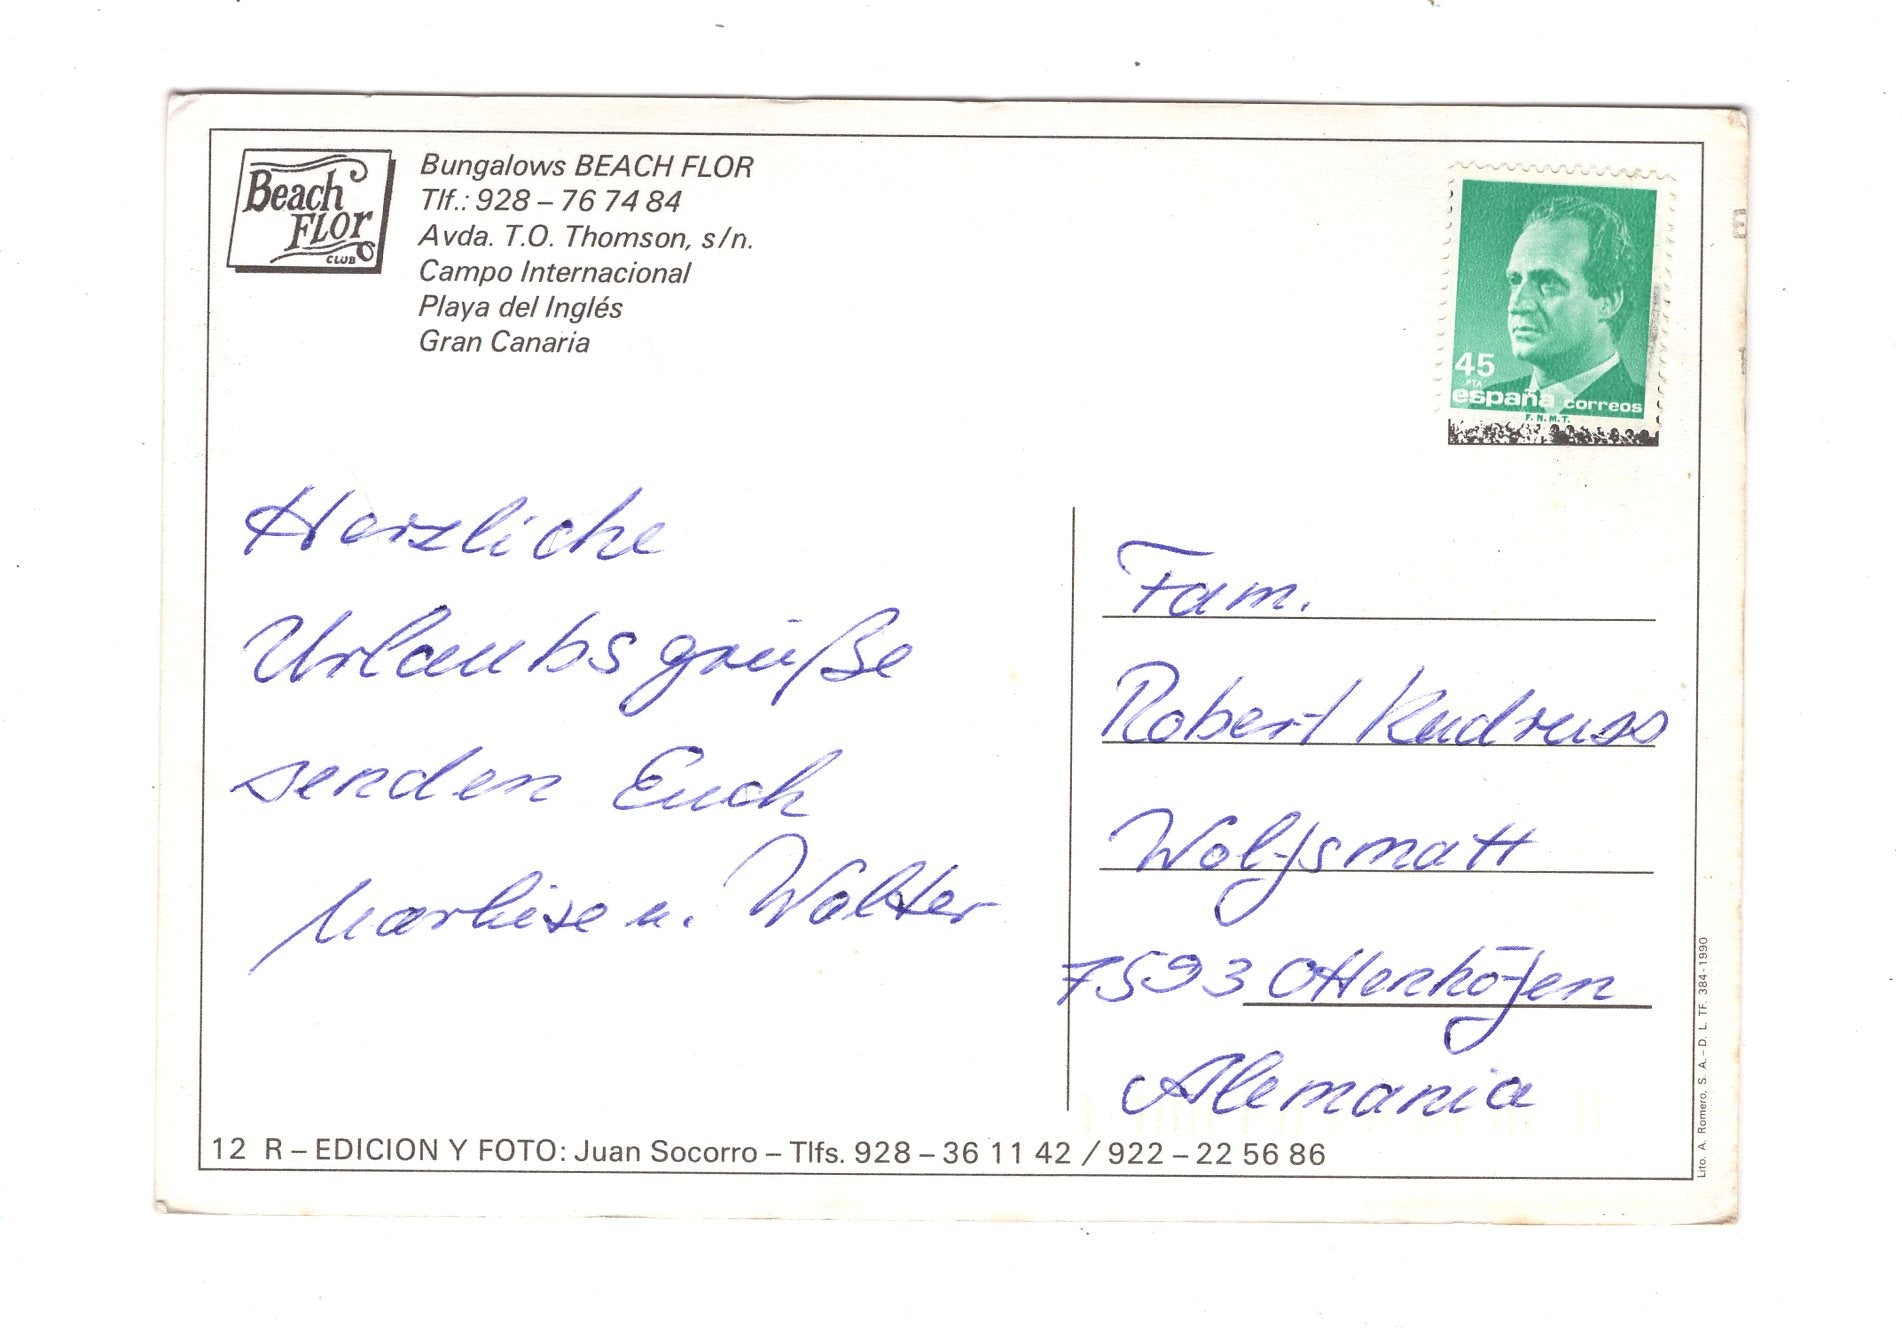 Beach
FLOR
CLUB
Bungalows BEACH FLOR
Tlf.: 928 – 76 74 84
Avda. T.O. Thomson, s/n.
Campo Internacional
Playa del Inglés
Gran Canaria
45
PTA
españa correos
F.N.M.T.
Herzliche
Urlaubsgrüße
senden Euch
Marliese u. Walter
Fam.
Robert
Wolfsmatt
7593 Ottenhöfen
Alemania
12 R – EDICION Y FOTO: Juan Socorro – Tlfs. 928 – 36 11 42 / 922 – 22 56 86
Lito. A. Romero, S. A. – D. L. TF. 384-1990